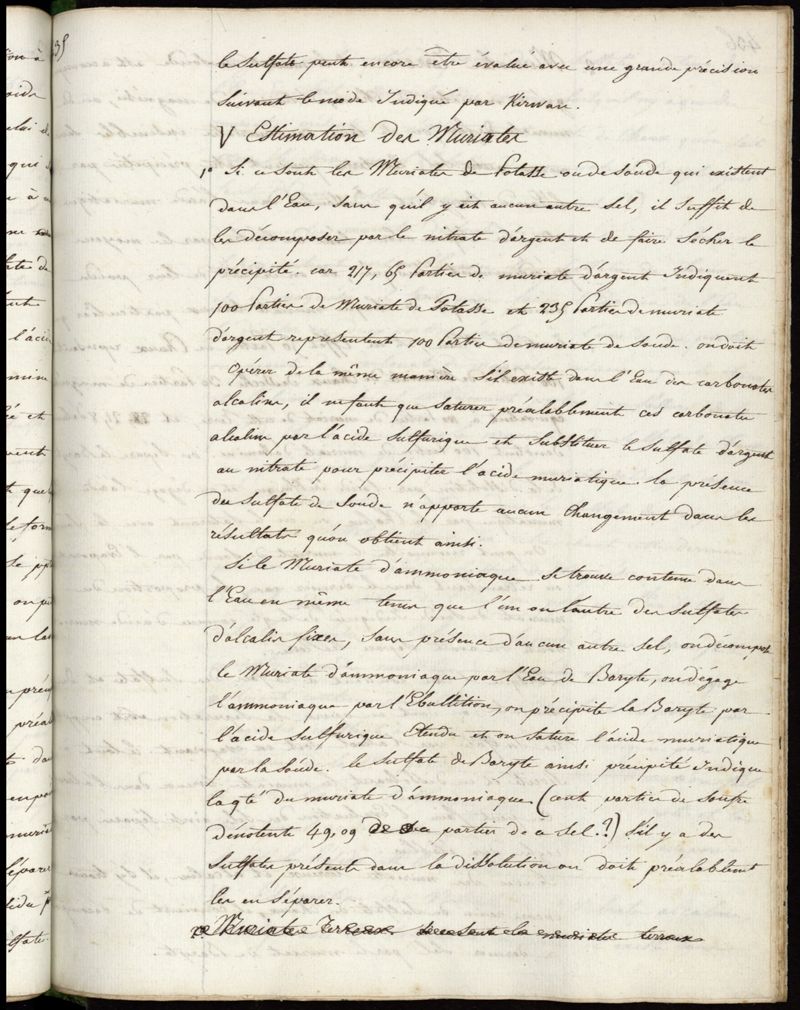 le sulfate peut encore etre évalué avec une grande précision
suivant le mode Indiqué par Kirwan.
V Estimation des Muriates
1° Si ce sont les Muriates de Potasse ou de soude qui existent
dans l'Eau, sans qu'il y ait aucun autre sel, il suffit de
les décomposer par le nitrate d'argent et de faire sécher le
précipité. car 217, 65 Parties de muriate d'argent Indiquent
100 Parties de Muriate de Potasse et 235 Parties de muriate
d'argent representent 100 Parties de muriate de soude. on doit
opérer de la même manière s'il existe dans l'Eau des carbonates
alcalins, il ne faut que saturer préalablement ces carbonates
alcalins par l'acide sulfurique et substituer le sulfate d'argent
au nitrate pour précipiter l'acide muriatique. la présence
des sulfate de soude n'apporte aucun changement dans les
résultats qu'on obtient ainsi.
Si le Muriate d'ammoniaque se trouve contenu dans
l'Eau en même tems que l'un ou l'autre des sulfates
d'alcalis fixes, sans présence d'aucun autre sel, on décompose
le Muriate d'ammoniaque par l'Eau de Baryte, on dégage
l'ammoniaque par l'Ebullition, on précipite la Baryte par
l'acide sulfurique Etendu et on sature l'acide muriatique
par la soude. le sulfate de Baryte ainsi précipité Indique
la qté du muriate d'ammoniaque (cent parties de soufre
dénotent 49,09 parties de ce sel.?) s'il y a des
sulfates présents dans la dissolution on doit préalablement
les en séparer.
2° Muriates Terreux les muriates terreux